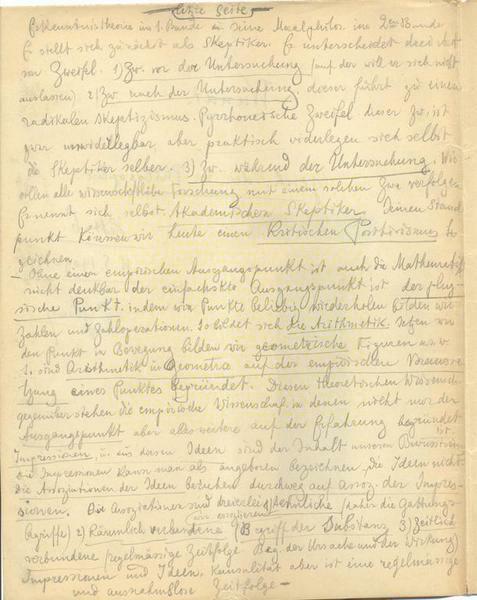 letzte Seite
Erkenntnistheorie im 1. Bande in seine Moralphilos. im 2ten Bande
Er stellt sich zunächst als Skeptiker. Er unterscheidet drei Art
sen Zweifel. 1) Zw. vor der Untersuchung (auf den will er sich nicht
auslassen) 2) Zw nach der Untersuchung dieser führt zu einem
radikalen Skeptizismus. Pyrrhoneische Zweifel dieser Zw. ist
zwar unwiderlegbar, aber praktisch widerlegen sich selbst
die Skeptiker selber. 3) Zw. während der Untersuchung. Wir
wollen alle wissenschaftliche Forschung mit einem solchen Zw. verfolgen
nennt sich selbst Akademischen Skeptiker Seinen Stand
punkt können wir heute einen Kritischen Positivismus be
zeichnen
Ohne einen empirischen Ausgangspunkt ist auch die Mathematik
nicht denkbar der einfachste Ausgangspunkt ist der phy-
sische Punkt. indem wir Punkte beliebig wiederholen bilden wir
Zahlen und Zahloperationen. So bildet sich die Arithmetik. Setzen wir
den Punkt in Bewegung bilden wir geometrische Figuren u.s.w.
So sind Arithmetik u Geometrie auf der empirischen Voraus-
setzung eines Punktes begründet. Diesen theoretischen Wissensch.
gegenüber stehen die empirische Wissenschaf. in denen nicht nur der
Ausgangspunkt aber alles weitere auf der Erfahrung begründet
ist
Impressionen u. aus diesen Ideen sind der Inhalt unseres Bewusstseins
die Impressionen kann man als angeboren bezeichnen, die Ideen nicht
die Assoziationen der Ideen beruhen durchweg auf Assoz. der Impres-
sionen. Die Assoziationen sind dreierlei 1) Aehnliche (daher die Gattungs-
begriffe) 2) Räumlich verbundene (Begriff der Substanz 3) Zeitlich
verbundene (regelmässige Zeitfolge Beg. der Ursache und der Wirkung)
Impressionen und Ideen, Kausalität aber ist eine regelmässige
und ausnahmslose Zeitfolge –